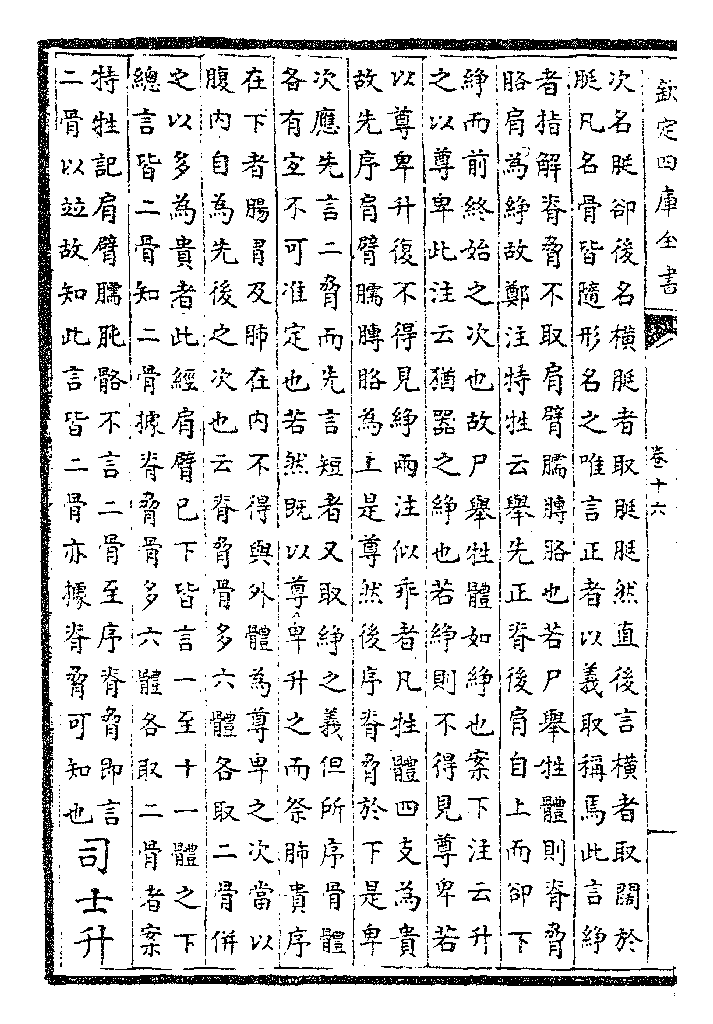 欽定四庫全書 卷十六
次名脡卻後名橫脡者取脡脡然直後言橫者取闊於
脡凡名骨皆隨形名之唯言正者以義取稱焉此言䋫
者指解脊脅不取肩臂臑膊胳也若尸舉牲體則脊脅
胳肩為䋫故鄭注特牲云舉先正脊後肩自上而卻下
䋫而前終始之次也故尸舉牲體如䋫也案下注云升
之以尊卑此注云猶器之䋫也若䋫則不得見尊卑若
以尊卑升復不得見䋫兩注似乖者凡牲體四支為貴
故先序肩臂臑膊胳為上是尊然後序脊脅於下是卑
次應先言二脅而先言短者又取䋫之義但所序骨體
各有宜不可准定也若然既以尊卑升之而祭肺貴序
在下者腸胃及肺在內不得與外體為尊卑之次當以
腹內自為先後之次也云脊脅骨多六體各取二骨併
之以多為貴者此經肩臂已下皆言一至十一體之下
總言皆二骨知二骨據脊脅骨多六體各取二骨者案
特牲記肩臂臑肫骼不言二骨至序脊脅即言
二骨以竝故知此言皆二骨亦據脊脅可知也
司士升